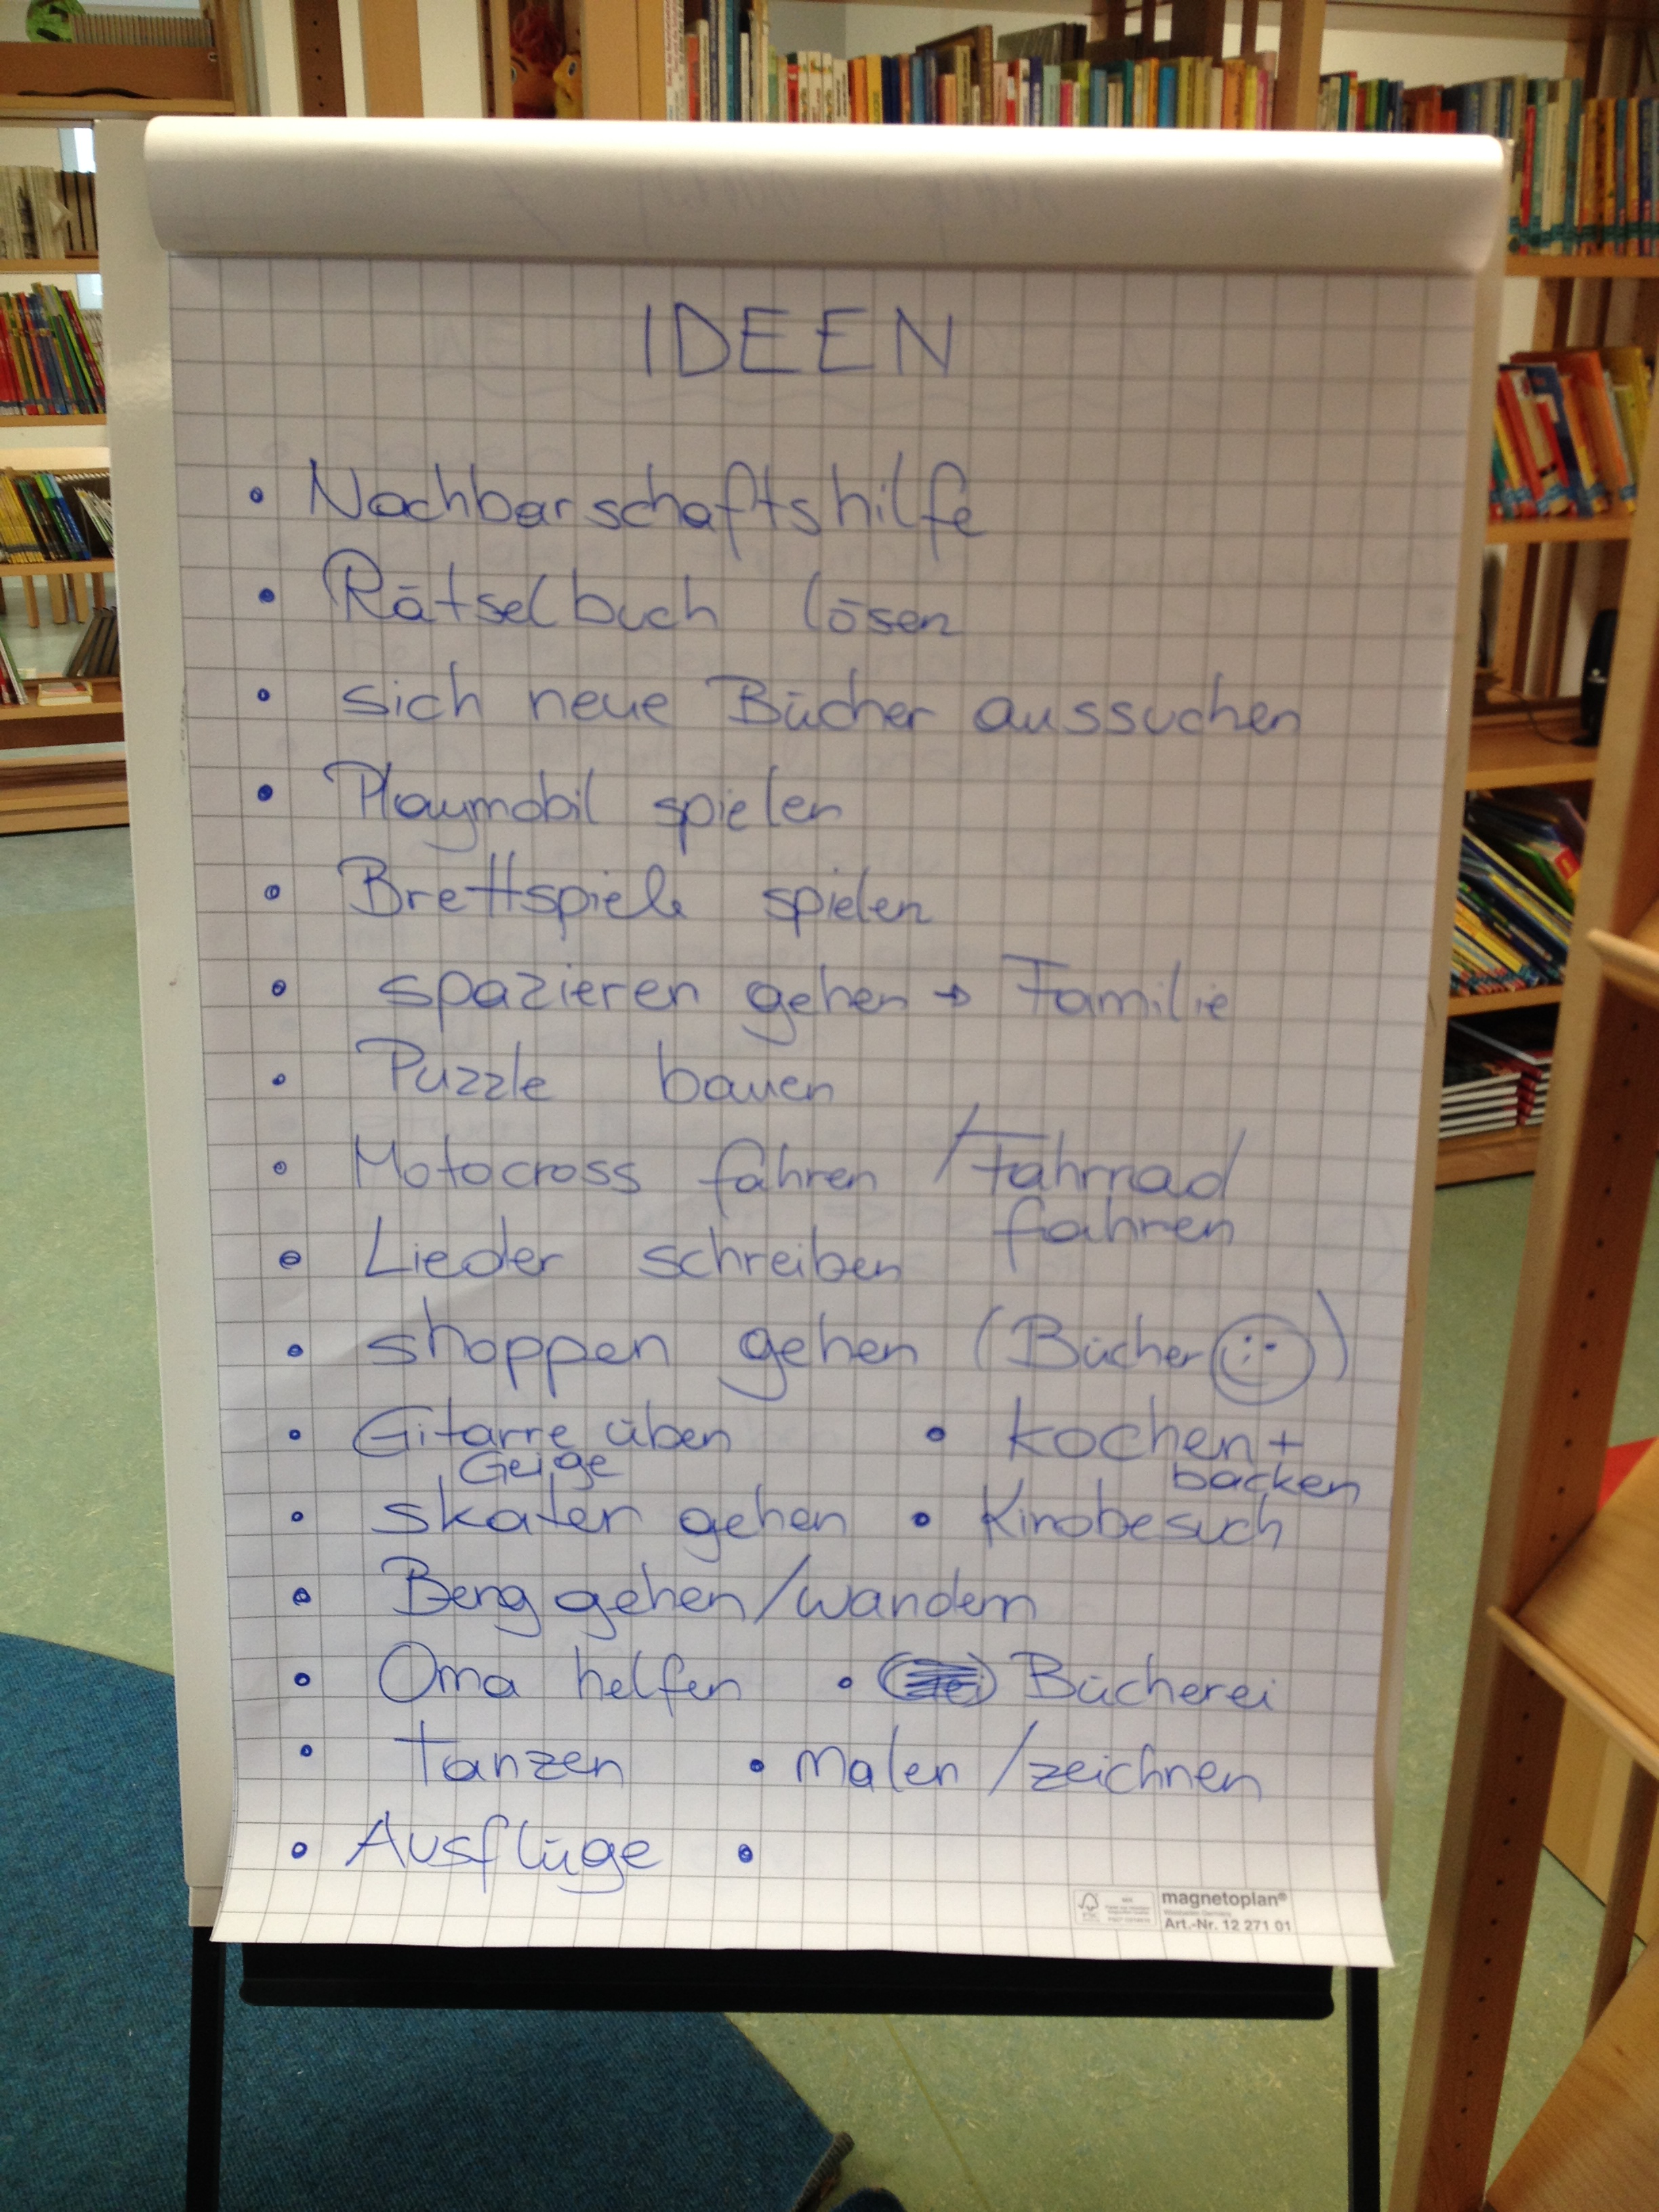 IDEEN
• Nachbarschaftshilfe
• Rätselbuch lösen
• sich neue Bücher aussuchen
• Playmobil spielen
• Brettspiele spielen
• spazieren gehen → Familie
• Puzzle bauen
• Motocross fahren / Fahrrad
fahren
• Lieder schreiben
• shoppen gehen (Bücher ☺)
• Gitarre üben • kochen +
Geige backen
• skaten gehen • Kinobesuch
• Berg gehen/wandern
• Oma helfen • Bücherei
• Tanzen • Malen / zeichnen
• Ausflüge •
magnetoplan®
Art.-Nr. 12 271 01